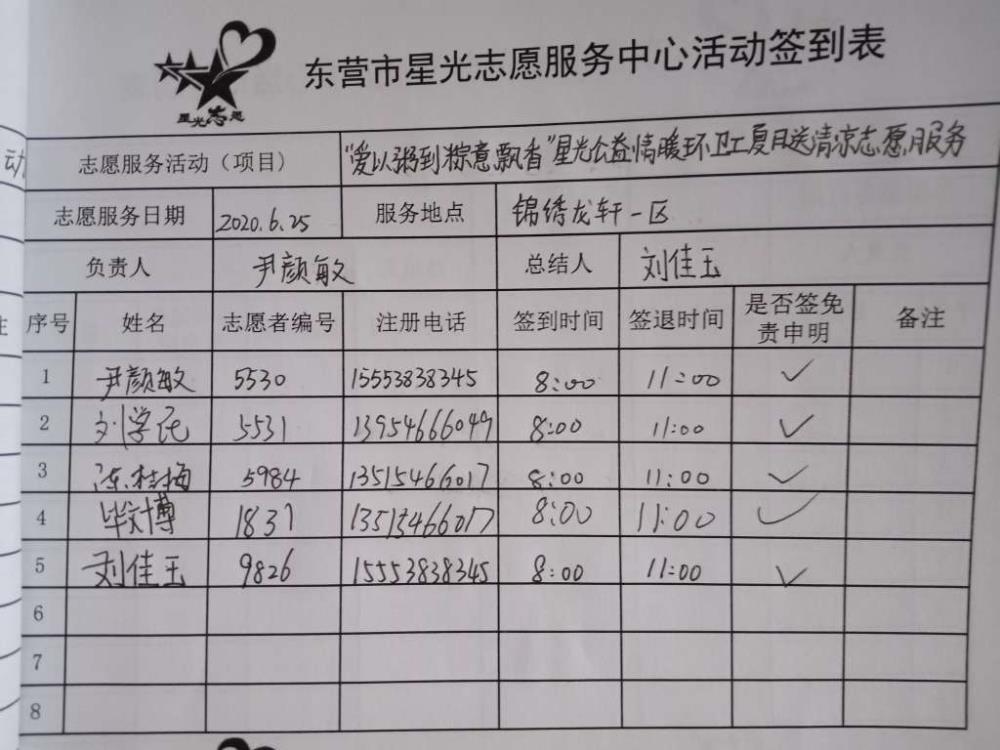 星光志愿
东营市星光志愿服务中心活动签到表
志愿服务活动（项目） "爱以粥到粽意飘香"星光公益情暖环卫工夏日送清凉志愿服务
志愿服务日期 2020.6.25 服务地点 锦绣龙轩一区
负责人 尹颜敏 总结人 刘佳玉
序号 姓名 志愿者编号 注册电话 签到时间 签退时间 是否签免责申明 备注
1 尹颜敏 5530 15553838345 8:00 11:00 ✓
2 刘学民 5531 13954666049 8:00 11:00 ✓
3 陈桂梅 5984 13515466017 8:00 11:00 ✓
4 毕文博 1837 13515466017 8:00 11:00 ✓
5 刘佳玉 9826 15553838345 8:00 11:00 ✓
6
7
8
动